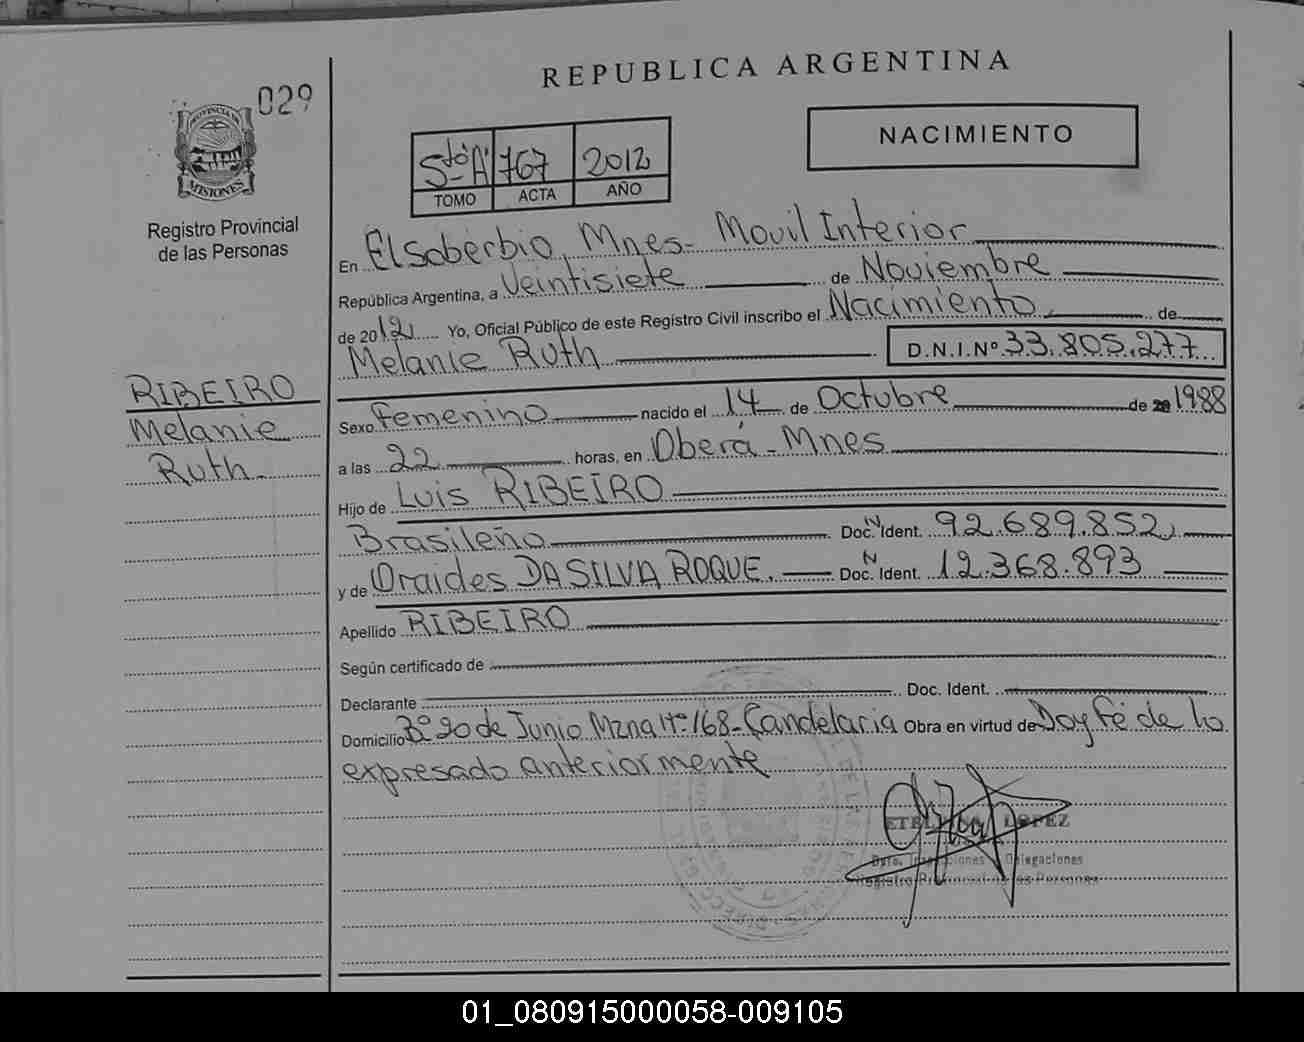 029
PROVINCIA DE
MISIONES
Registro Provincial
de las Personas
REPUBLICA ARGENTINA
Sto "A" 767 2012
TOMO ACTA AÑO
NACIMIENTO
En Elsoberbio, Mnes- Movil Interior
República Argentina, a Veintisiete de Noviembre
de 2012 Yo, Oficial Público de este Registro Civil inscribo el Nacimiento de
Melanie Ruth D.N.I.Nº 33.805.277
RIBEIRO
Melanie
Ruth
Sexo femenino nacido el 14 de Octubre de 1988
a las 22 horas, en Oberá - Mnes
Hijo de Luis RIBEIRO
Brasileño Doc. N Ident. 92.689.852
y de Oraides DA SILVA ROQUE. Doc. N Ident. 12.368.893
Apellido RIBEIRO
Según certificado de
Declarante Doc. Ident.
Domicilio Bº 20 de Junio Mzna Nº 168- Candelaria Obra en virtud de Doy fé de lo
expresado anteriormente
LOPEZ
Dpto. Delegaciones
Registro Provincial de las Personas
01_080915000058-009105